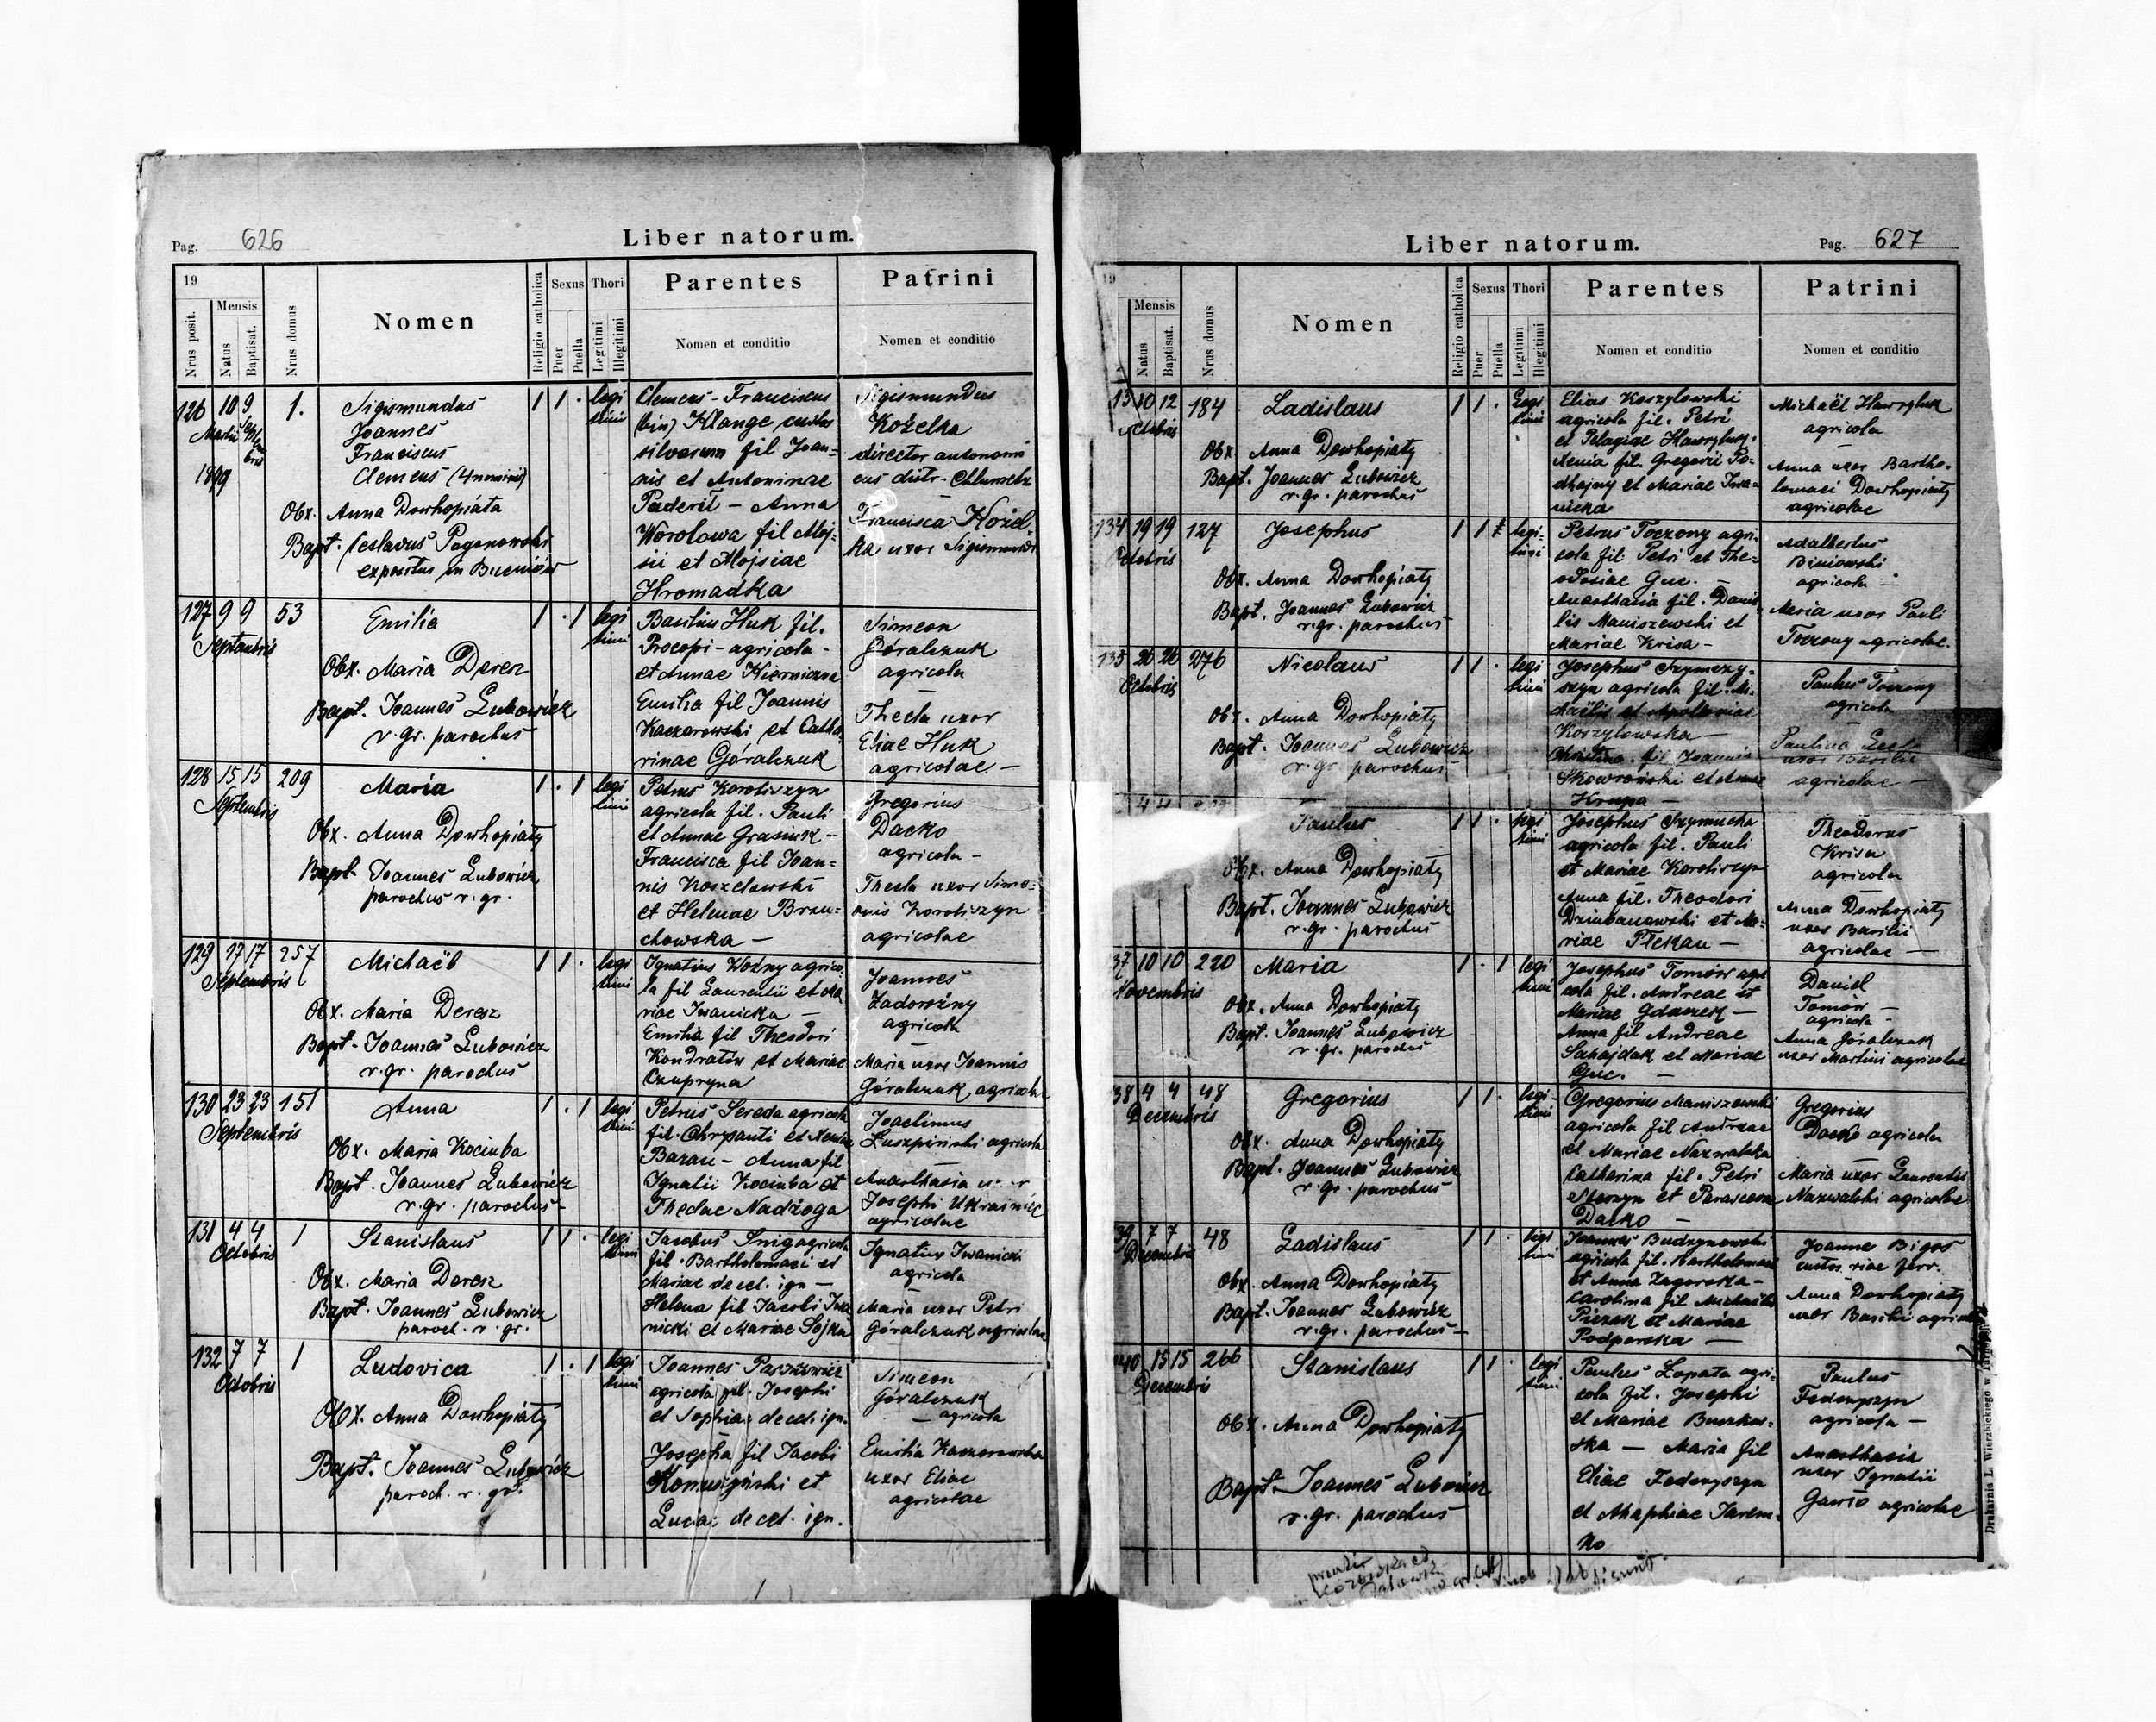 Pag. 626
Liber natorum.
19
Nrus posit.
Mensis
Natus
Baptisat.
Nrus domus
Nomen
Religio catholica
Sexus
Puer
Puella
Thori
Legitimi
Illegitimi
Parentes
Nomen et conditio
Patrini
Nomen et conditio
126 10 9 1. Sigismundus 1 1 . legi
Martii
1899
Joannes
Franciscus
Clemens (4 nominum)
Obx. Anna Dowhopiáta
Bapt. Ceslavus Pogonowski
expositus in Bucniów
timi
Clemens-Franciscus
(bin) Klange custos
silvarum fil Joan=
nis et Antoninae
Paderit – Anna
Worolowa fil Aloj=
sii et Alojsiae
Hromadka
Sigismundus
Koželka
director autonomi
cus distr. Chlumetz
Francisca Kožel
ka uxor Sigismundi
127 9 9 53 Emilia 1 . 1 legi
Septembris
timi
Obx. Maria Deresz
Bapt. Joannes Lubowicz
r. gr. parochus
Basilius Huk fil.
Procopi – agricola –
et Annae Kierniczna
Emilia fil Joannis
Kaczorowski et Catha
rinae Góralczuk
Simeon
Góralczuk
agricola
Thecla uxor
Eliae Huk
agricolae –
128 15 15 209 Maria 1 . 1 legi
Septembris
timi
Obx. Anna Dowhopiáty
Bapt. Joannes Lubowicz
parochus r. gr.
Petrus Korotiszyn
agricola fil. Pauli
et Annae Grasiuk –
Francisca fil Joan=
nis Koszelowski
et Helenae Brzu=
chowska –
Gregorius
Dacko
agricola –
Thecla uxor Sime=
onis Korotiszyn
agricolae
129 17 17 257 Michaël 1 1 . legi
Septembris
timi
Obx. Maria Deresz
Bapt. Joannes Lubowicz
r. gr. parochus
Ignatius Woźny agrico
la fil Laurentii et Ma
riae Iwanicka –
Emilia fil Theodori
Kondratów et Mariae
Czupryna
Joannes
Zadorożny
agricola
Maria uxor Joannis
Góralczuk agricola
130 23 23 151 Anna 1 . 1 legi
Septembris
timi
Obx. Maria Kociuba
Bapt. Joannes Lubowicz
r. gr. parochus –
Petrus Sereda agricola
fil. Chrysanti et Xeniae
Baran – Anna fil
Ignatii Kociuba et
Theclae Nadżoga
Joachimus
agricola
Anasthasia
Josephi Ukrainiec
agricolae
131 4 4 1 Stanislaus 1 1 . legi
Octobris
timi
Obx. Maria Deresz
Bapt. Joannes Lubowicz
paroch. r. gr.
Jacobus Snig agricola
fil. Bartholomaei et
Mariae de cet. ign –
Helena fil Jacobi Iwa
nicki et Mariae Sojka
Ignatius Iwanicki
agricola
Maria uxor Petri
Góralczuk agricolae
132 7 7 1 Ludovica 1 . 1 legi
Octobris
timi
Obx. Anna Dowhopiáty
Bapt. Joannes Lubowicz
paroch. r. gr.
Joannes
agricola fil. Josephi
et Sophiae de cet. ign.
Josepha fil Jacobi
et
Lucia: de cet. ign.
Simeon
Góralczuk
– agricola
Emilia Kaczorowska
uxor Eliae
agricolae
Liber natorum.
Pag. 627
19
Mensis
Natus
Baptisat.
Nrus domus
Nomen
Religio catholica
Sexus
Puer
Puella
Thori
Legitimi
Illegitimi
Parentes
Nomen et conditio
Patrini
Nomen et conditio
13 10 12 184 Ladislaus 1 1 . Legi
timi
Obx. Anna Dowhopiaty
Bapt. Joannes Lubowicz
r. gr. parochus
Elias Koszylowski
agricola fil. Petri
et Pelagiae Hawryluk.
Xenia fil. Gregorii Po=
dhajny et Mariae Iwa=
nicka
Michaël Hawryluk
agricola
Anna uxor Bartho=
lomaei Dowhopiaty
agricolae
134 19 19 127 Josephus 1 1 legi=
Octobris
timi
Obx. Anna Dowhopiaty
Bapt. Joannes Lubowicz
r. gr. parochus
Petrus Toczony agri=
cola fil Petri et The=
odosiae Guc. –
Anasthasia fil. Danie=
lis Maniszewski et
Mariae Krisa –
Adalbertus
Biniowski
agricola –
Maria uxor Pauli
Toczony agricolae.
135 26 26 276 Nicolaus 1 1 . legi
Octobris
timi
Obx. Anna Dowhopiaty
Bapt. Joannes Lubowicz
r. gr. parochus
Josephus Szymczy=
szyn agricola fil. Mi=
chaëlis et Apolloniae
Koszylowska –
Christina fil Joannis
Skowroński et Annae
Krupa –
Paulus Toczony
agricola
Paulina
uxor Basilii
agricolae –
4 4 Paulus 1 1 . legi
timi
Obx. Anna Dowhopiaty
Bapt. Joannes Lubowicz
r. gr. parochus
Josephus Szymucha
agricola fil. Pauli
et Mariae Korotiszyn
Anna fil. Theodori
Dziubanowski et Ma=
riae Plekan –
Theodorus
Krisa
agricola
Anna Dowhopiaty
uxor Basilii
agricolae –
37 10 10 220 Maria 1 . 1 legi
Novembris
timi
Obx. Anna Dowhopiaty
Bapt. Joannes Lubowicz
r. gr. parochus
Josephus Tomów agri
cola fil. Andreae et
Mariae Gdaczek –
Anna fil Andreae
Sahajdak et Mariae
Guc. –
Daniel
Tomów –
agricola –
Anna Goralczuk
uxor Martini agricolae
38 4 4 48 Gregorius 1 1 . legi
Decembris
timi
Obx. Anna Dowhopiaty
Bapt. Joannes Lubowicz
r. gr. parochus
Gregorius Maniszewski
agricola fil Andreae
et Mariae Nazwalska
Catharina fil. Petri
et Parasceva
Dacko –
Gregorius
Dacko agricola
Maria uxor Laurentii
Nazwalski agricolae
39 7 7 48 Ladislaus 1 1 . legi
Decembris
timi
Obx. Anna Dowhopiaty
Bapt. Joannes Lubowicz
r. gr. parochus –
Joannes Budzynowski
agricola fil. Bartholomaei
et Anna Zagorska –
Carolina fil Michaëlis
Piczak et Mariae
Podporska –
Joannes Bigos
custos viae ferr.
Anna Dowhopiaty
uxor Basilii agricolae
40 15 15 266 Stanislaus 1 1 . legi
Decembris
timi
Obx. Anna Dowhopiaty
Bapt. Joannes Lubowicz
r. gr. parochus
Paulus Lopata agri=
cola fil. Josephi
et Mariae Buczkow=
ska – Maria fil
Eliae Fedczyszyn
et Ahaphiae Jarem=
ko
Paulus
Fedczyszyn
agricola –
Anasthasia
uxor Ignatii
Gawio agricolae
Drukarnia L. Wierzbickiego w Tarnopolu